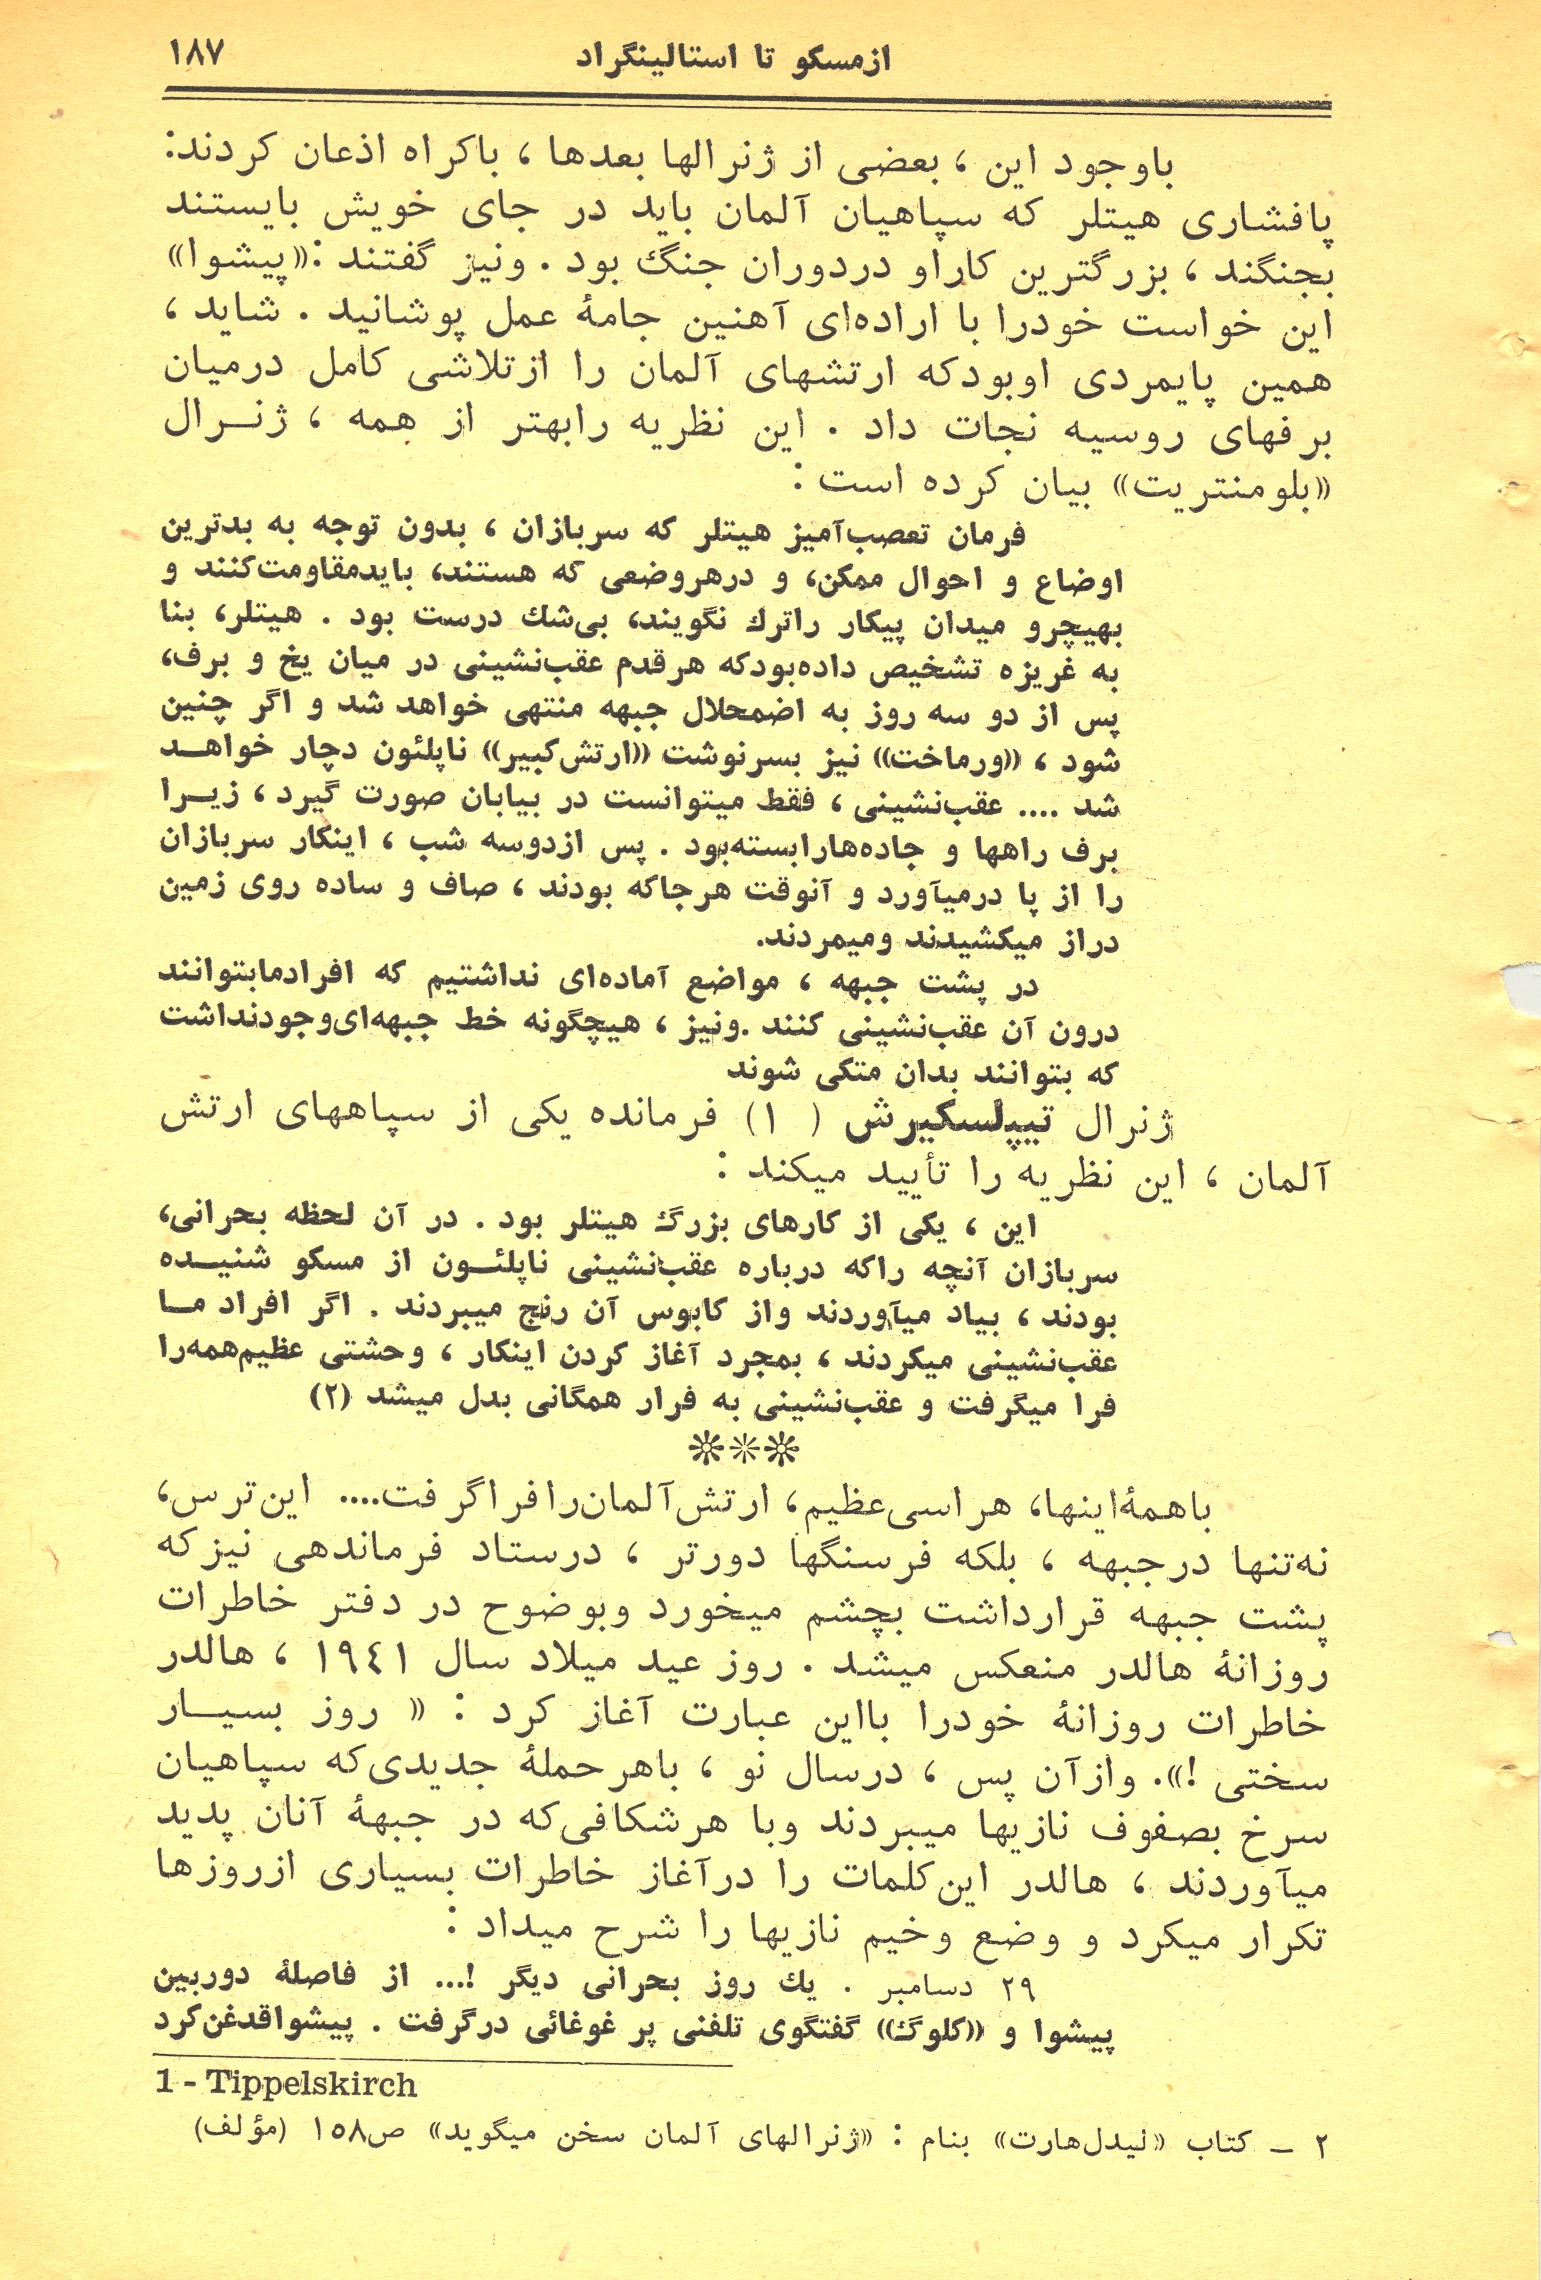 ازمسکو تا استالینگراد
۱۸۷
باوجود این ، بعضی از ژنرالها بعدها ، باکراه اذعان کردند:
پافشاری هیتلر که سپاهیان آلمان باید در جای خویش بایستند
بجنگند ، بزرگترین کاراو دردوران جنگ بود . ونیز گفتند :«پیشوا»
این خواست خودرا با اراده‌ای آهنین جامهٔ عمل پوشانید . شاید ،
همین پایمردی اوبودکه ارتشهای آلمان را ازتلاشی کامل درمیان
برفهای روسیه نجات داد . این نظریه رابهتر از همه ، ژنـرال
«بلومنتریت» بیان کرده است :
فرمان تعصب‌آمیز هیتلر که سربازان ، بدون توجه به بدترین
اوضاع و احوال ممکن، و درهروضعی که هستند، بایدمقاومت‌کنند و
بهیچرو میدان پیکار راترك نگویند، بی‌شك درست بود . هیتلر، بنا
به غریزه تشخیص داده‌بودکه هرقدم عقب‌نشینی در میان یخ و برف،
پس از دو سه روز به اضمحلال جبهه منتهی خواهد شد و اگر چنین
شود ، «ورماخت» نیز بسرنوشت «ارتش‌کبیر» ناپلئون دچار خواهـد
شد .... عقب‌نشینی ، فقط میتوانست در بیابان صورت گیرد ، زیـرا
برف راهها و جاده‌هارابسته‌بود . پس ازدوسه شب ، اینکار سربازان
را از پا درمیآورد و آنوقت هرجاکه بودند ، صاف و ساده روی زمین
دراز میکشیدند ومیمردند.
در پشت جبهه ، مواضع آماده‌ای نداشتیم که افرادمابتوانند
درون آن عقب‌نشینی کنند .ونیز ، هیچگونه خط جبهه‌ای‌وجودنداشت
که بتوانند بدان متکی شوند
ژنرال تیپلسکیرش ( ۱) فرمانده یکی از سپاههای ارتش
آلمان ، این نظریه را تأیید میکند :
این ، یکی از کارهای بزرگ هیتلر بود . در آن لحظه بحرانی،
سربازان آنچه راکه درباره عقب‌نشینی ناپلئـون از مسکو شنیـده
بودند ، بیاد میآوردند واز کابوس آن رنج میبردند . اگر افراد مـا
عقب‌نشینی میکردند ، بمجرد آغاز کردن اینکار ، وحشتی عظیم‌همه‌را
فرا میگرفت و عقب‌نشینی به فرار همگانی بدل میشد (۲)
❊❊❊
باهمهٔ‌اینها، هراسی‌عظیم، ارتش‌آلمان‌رافراگرفت.... این‌ترس،
نه‌تنها درجبهه ، بلکه فرسنگها دورتر ، درستاد فرماندهی نیزکه
پشت جبهه قرارداشت بچشم میخورد وبوضوح در دفتر خاطرات
روزانهٔ هالدر منعکس میشد . روز عید میلاد سال ۱۹٤۱ ، هالدر
خاطرات روزانهٔ خودرا بااین عبارت آغاز کرد : « روز بسیـار
سختی !». وازآن پس ، درسال نو ، باهرحملهٔ جدیدی‌که سپاهیان
سرخ بصفوف نازیها میبردند وبا هرشکافی‌که در جبههٔ آنان پدید
میآوردند ، هالدر این‌کلمات را درآغاز خاطرات بسیاری ازروزها
تکرار میکرد و وضع وخیم نازیها را شرح میداد :
۲۹ دسامبر . یك روز بحرانی دیگر !... از فاصلهٔ دوربین
پیشوا و «کلوگ» گفتگوی تلفنی پر غوغائی درگرفت . پیشواقدغن‌کرد
1 - Tippelskirch
۲ – کتاب «لیدل‌هارت» بنام : «ژنرالهای آلمان سخن میگوید» ص۱۵۸ (مؤلف)